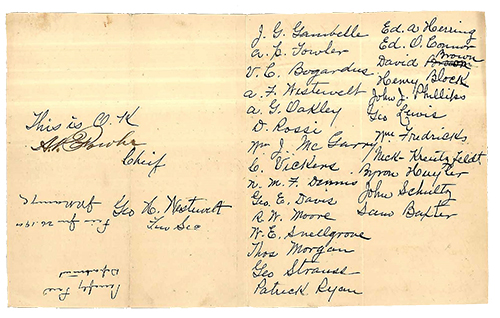 This is O.K
Chief
Geo H. Westervelt
Sec
J. G. Gambelle
A. P. Fowler
V. C. Bogardus
A. F. Westervelt
A. G. Oakley
D. Rossi
Wm J. McGarry
C. Vickers
N. M. F. Dennis
Geo. E. Davis
R. W. Moore
W. E. Snellgrove
Thos Morgan
Geo Strauss
Patrick Ryan
Ed. A Herring
Ed. O. Connor
David Brown
Henry Block
John J. Phillips
Geo Lewis
Wm Fredricks
Nick Kreutzfeldt
Byron Huyler
John Schultz
Sam Baxter